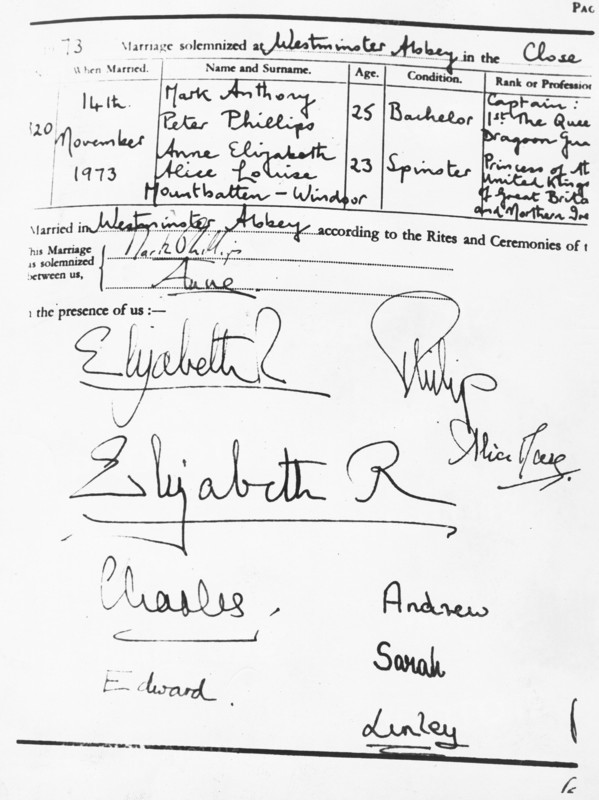 PAG
73 Marriage solemnized at Westminster Abbey in the Close
When Married. Name and Surname. Age. Condition. Rank or Profession
320 14th. November 1973 Mark Anthony Peter Phillips 25 Bachelor Captain: 1st The Quee Dragoon Gua
Anne Elizabeth Alice Louise Mountbatten-Windsor 23 Spinster Princess of th United Kingd of Great Brita and Northern Ire
Married in Westminster Abbey according to the Rites and Ceremonies of t
This Marriage was solemnized between us,
Mark Phillips
Anne.
in the presence of us :—
Elizabeth R
Philip
Alice
Elizabeth R
Charles,
Andrew
Sarah
Edward.
Linley